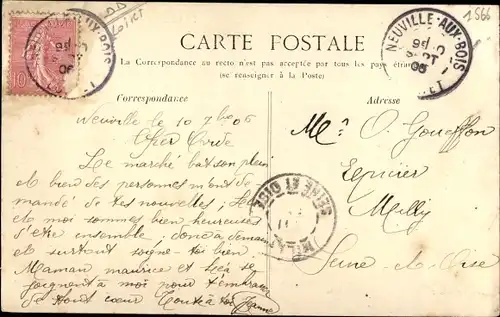 1566
CARTE POSTALE
La Correspondance au recto n'est pas acceptée par tous les pays
(se renseigner à la Poste)
NEUVILLE-AUX-BOIS
LOIRET
10
Correspondance
Neuville 10 7bre 06
Cher
Le marché bat son plein
et bien des personnes m'ont de-
mandé de tes nouvelles,
et moi sommes bien heureuses
d'être ensemble, donc à demain
et surtout soigne-toi bien
Maman maurice et se
joignent à moi pour t'embrasser
de tout cœur Toute à toi Jeanne
NEUVILLE-AUX-BOIS
Adresse
Mr O. Goueffon
Epicier
Milly
Seine-et-Oise
SEINE ET OISE
MILLY